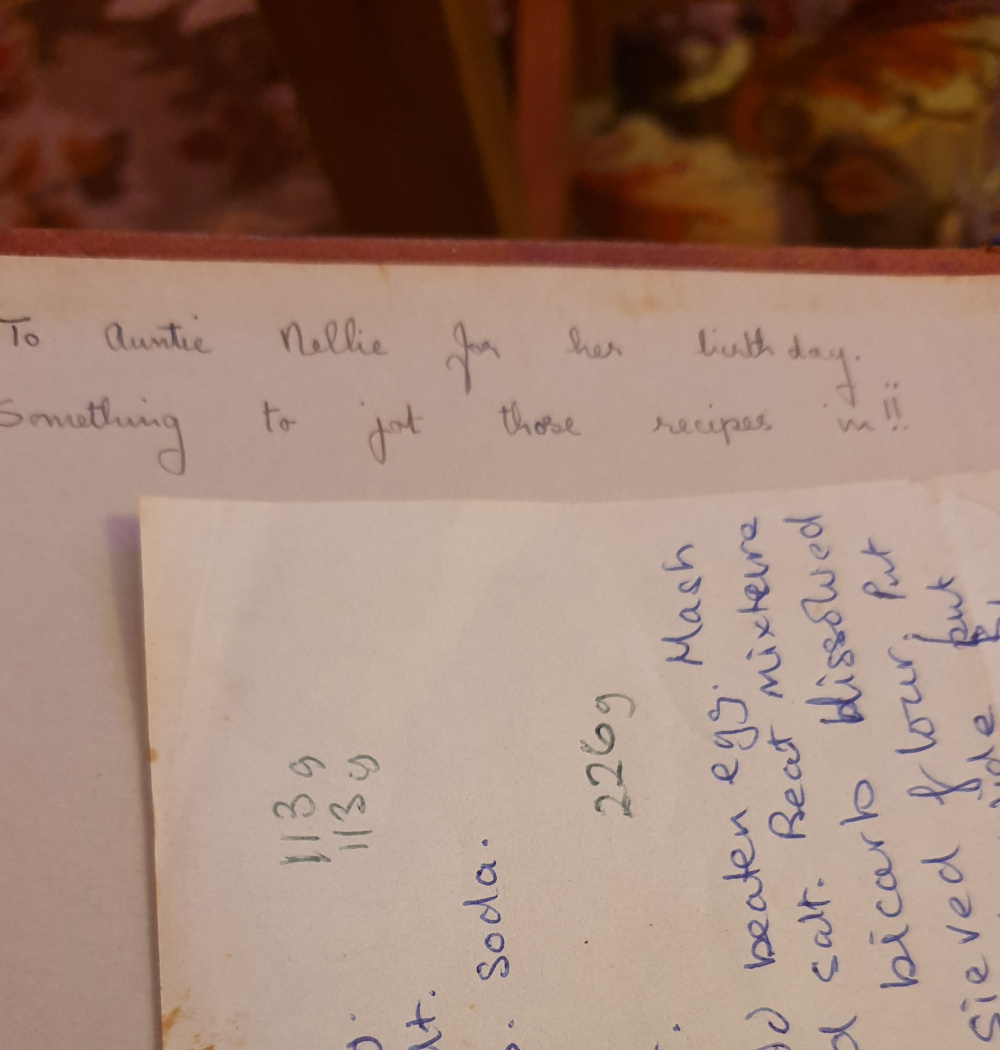 To Auntie Nellie for her birthday.
Something to jot those recipes in!!
113g
113g
lt.
soda.
226g
beaten egg. Mash
salt. Beat mixture
bicarb dissolved
Sieved flour. Put
but